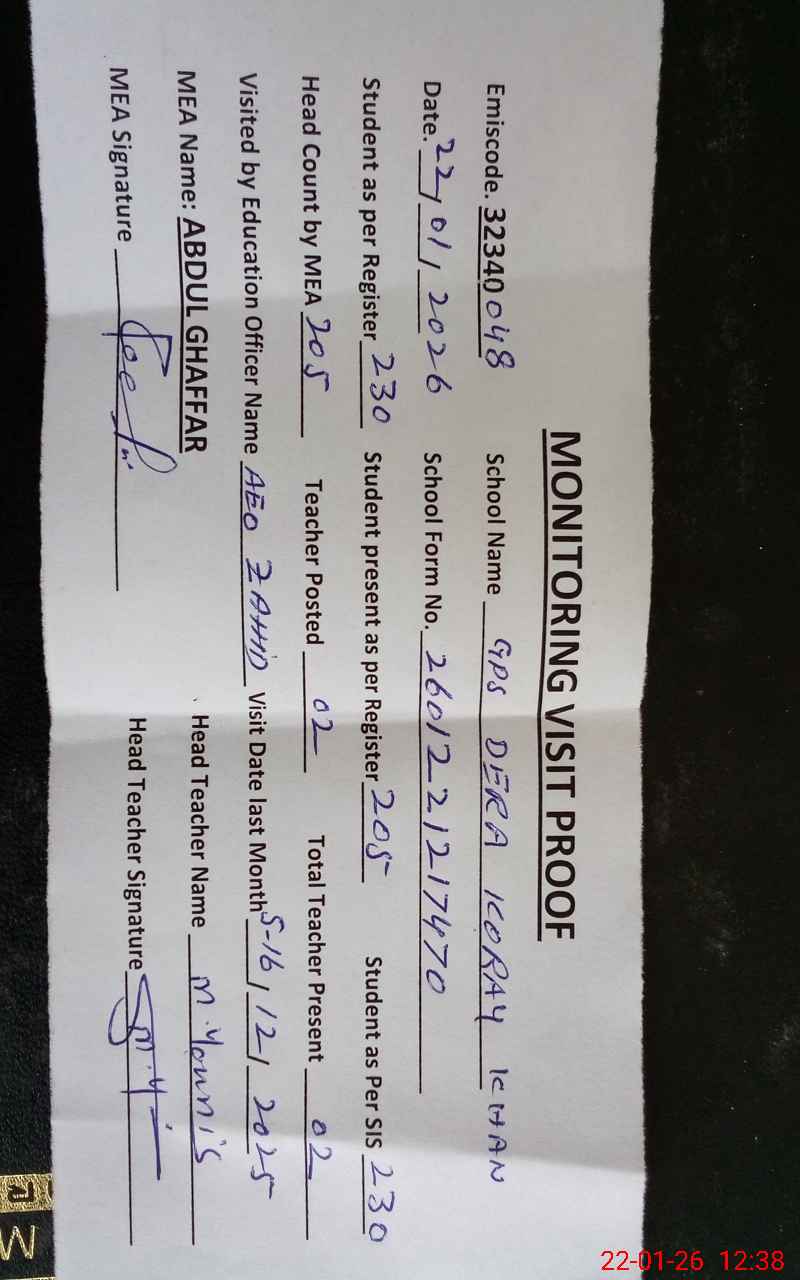 MONITORING VISIT PROOF
Emiscode. 32340048 School Name GPS DERA KORAY KHAN
Date. 22/01/2026 School Form No. 2601221217470
Student as per Register 230 Student present as per Register 205 Student as Per SIS 230
Head Count by MEA 205 Teacher Posted 02 Total Teacher Present 02
Visited by Education Officer Name AEO ZAHID Visit Date last Month 5-16/12/2025
MEA Name: ABDUL GHAFFAR Head Teacher Name M. Younis
MEA Signature Head Teacher Signature M.Y
22-01-26 12:38